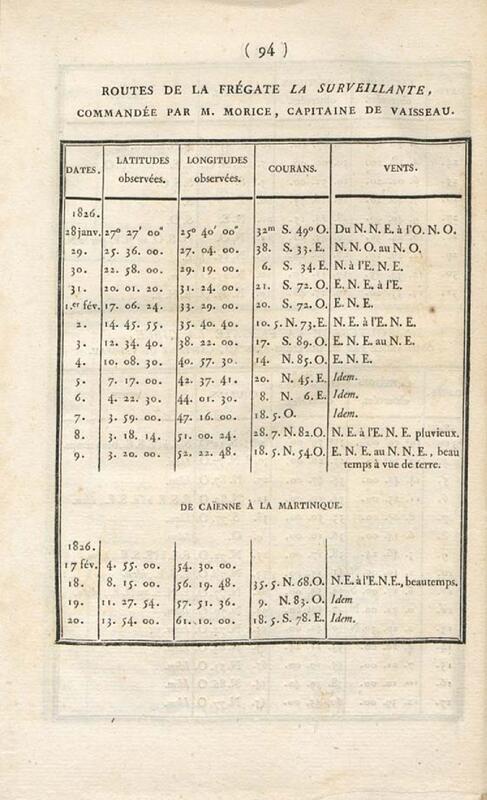 ( 94 )
ROUTES DE LA FRÉGATE LA SURVEILLANTE,
COMMANDÉE PAR M. MORICE, CAPITAINE DE VAISSEAU.
DATES. LATITUDES observées. LONGITUDES observées. COURANS. VENTS.
1826.
28 janv. 27° 27' 00" 25° 40' 00" 32m S. 49° O. Du N. N. E. à l'O. N. O.
29. 25. 36. 00. 27. 04. 00. 38. S. 33. E. N. N. O. au N. O.
30. 22. 58. 00. 29. 19. 00. 6. S. 34. E. N. à l'E. N. E.
31. 20. 01. 20. 31. 24. 00. 21. S. 72. O. E. N. E. à l'E.
1.er fév. 17. 06. 24. 33. 29. 00. 20. S. 72. O. E. N. E.
2. 14. 45. 55. 35. 40. 40. 10. 5. N. 73. E. N. E. à l'E. N. E.
3. 12. 34. 40. 38. 22. 00. 17. S. 89. O. E. N. E. au N. E.
4. 10. 08. 30. 40. 57. 30. 14. N. 85. O. E. N. E.
5. 7. 17. 00. 42. 37. 41. 20. N. 45. E. Idem.
6. 4. 22. 30. 44. 01. 30. 8. N. 6. E. Idem.
7. 3. 59. 00. 47. 16. 00. 18. 5. O. Idem.
8. 3. 18. 14. 51. 00. 24. 28. 7. N. 82. O. N. E. à l'E. N. E. pluvieux.
9. 3. 20. 00. 52. 22. 48. 18. 5. N. 54. O. E. N. E. au N. N. E., beau
temps à vue de terre.
DE CAÏENNE À LA MARTINIQUE.
1826.
17 fév. 4. 55. 00. 54. 30. 00.
18. 8. 15. 00. 56. 19. 48. 35. 5. N. 68. O. N. E. à l'E. N. E., beau temps.
19. 11. 27. 54. 57. 51. 36. 9. N. 83. O Idem
20. 13. 54. 00. 61. 10. 00. 18. 5. S. 78. E. Idem.